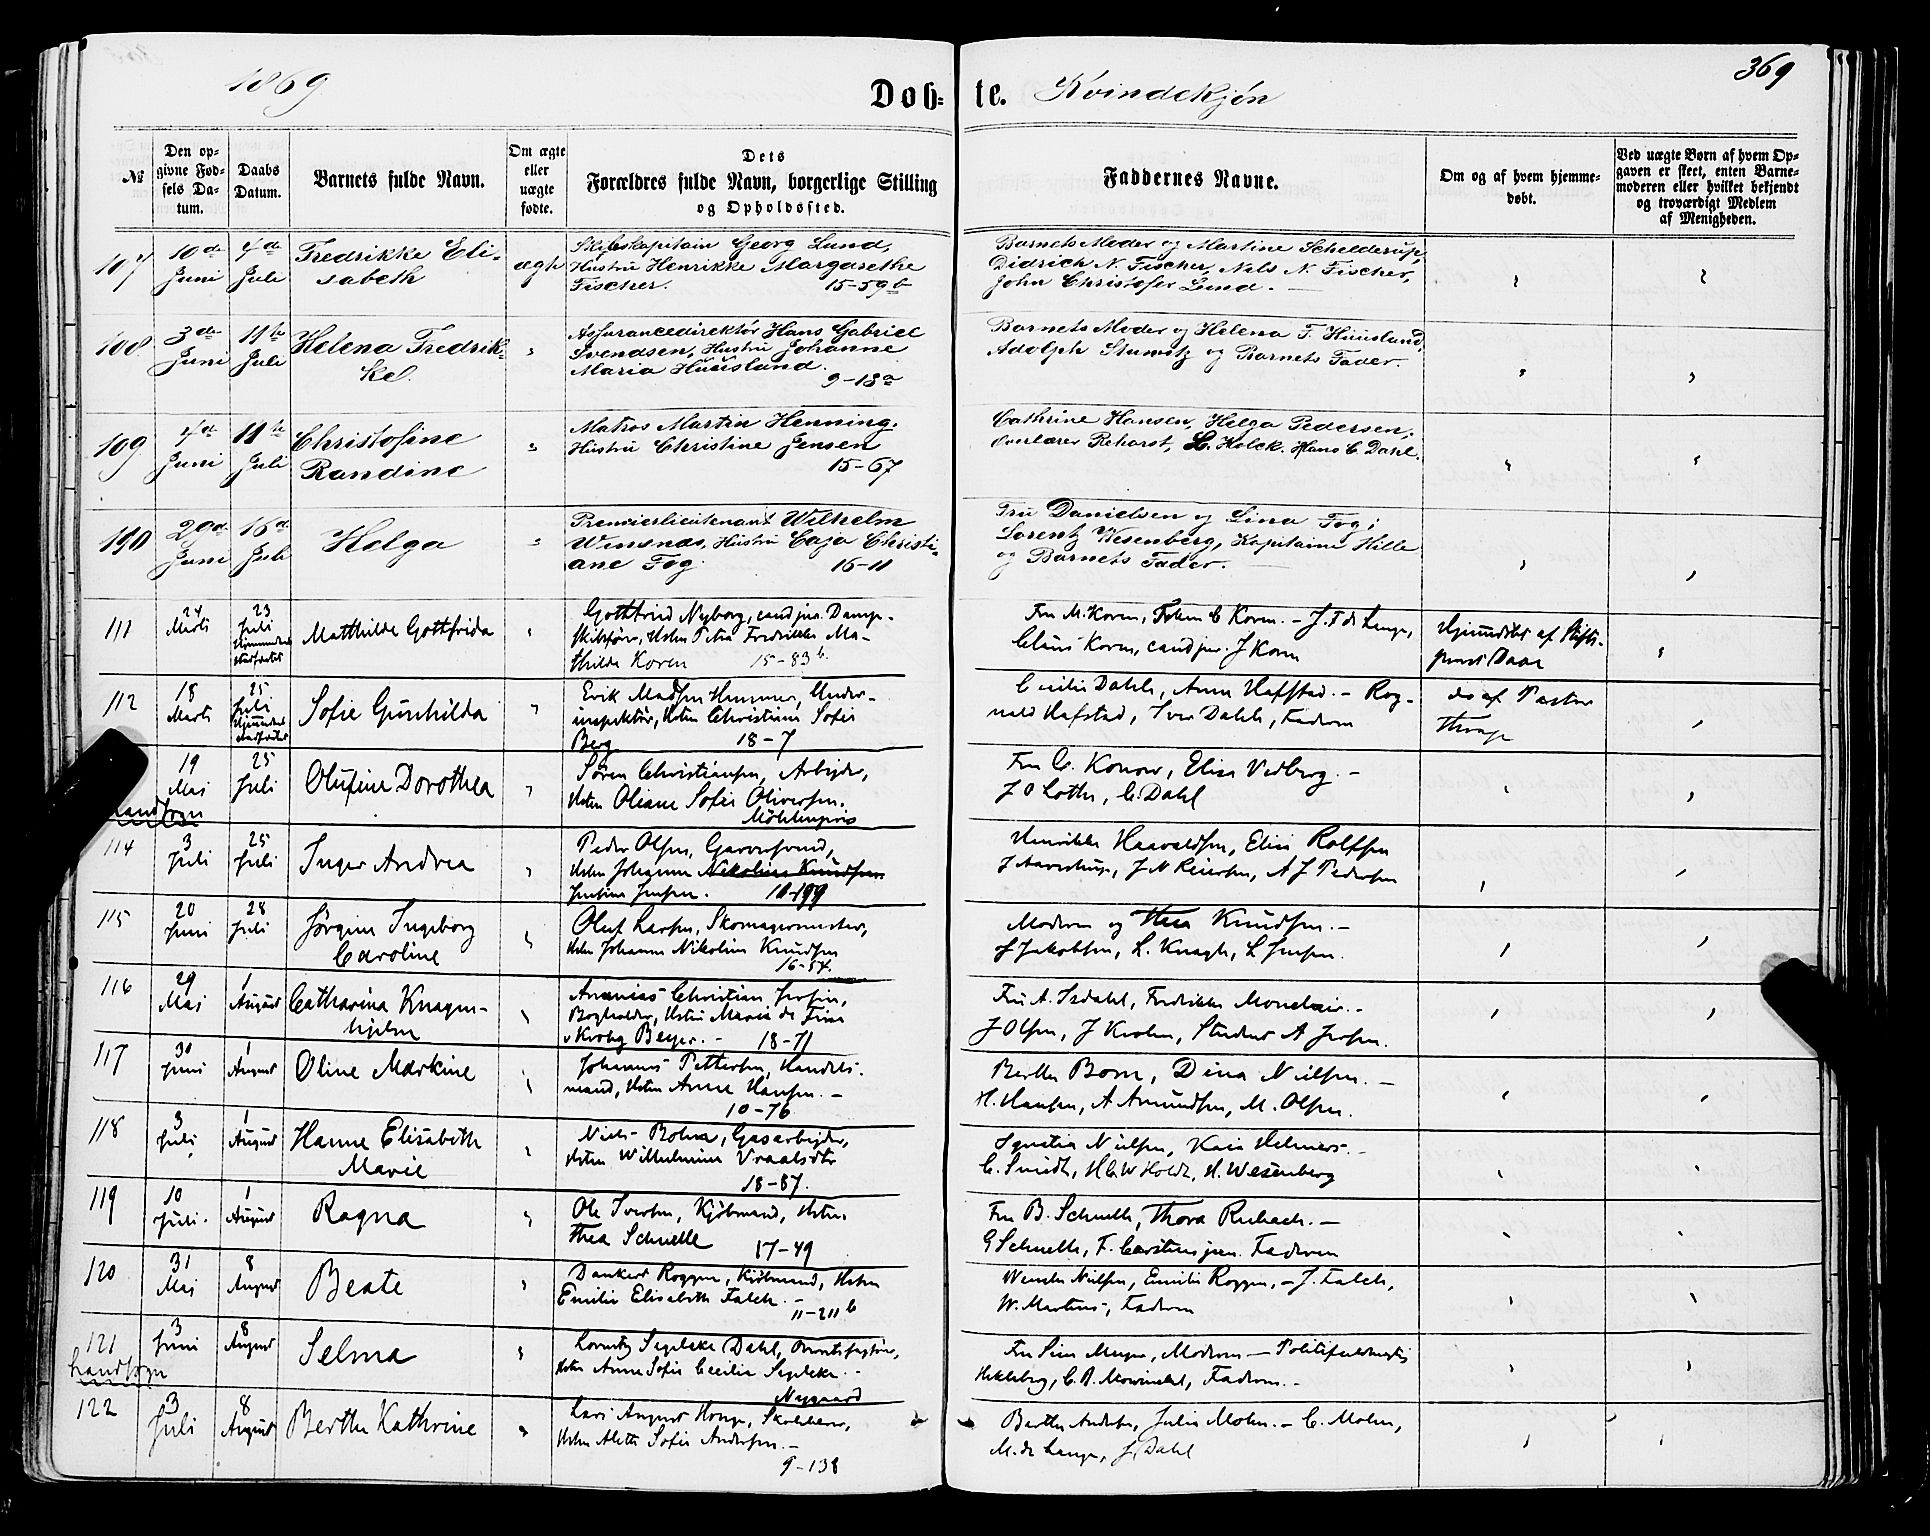 1869
Døb-te. Kvindekjøn
369
№
Den op-
givne Fød-
sels Da-
tum.
Daabs
Datum.
Barnets fulde Navn.
Om ægte
eller
uægte
fødte.
Dets
Forældres fulde Navn, borgerlige Stilling
og Opholdssted.
Faddernes Navne.
Om og af hvem hjemme-
døbt.
Ved uægte Børn af hvem Op-
gaven er skeet, enten Barne-
moderen eller hvilket bekjendt
og troværdigt Medlem
af Menigheden.
107
10de
Juni
4de
Juli
Fredrikke Eli-
sabeth
ægte
Skibskapitain Georg Lund,
Hustru Henrikke Margarethe
Fischer. 15-59b
Barnets Moder og Martine Schelderup,
Didrich N. Fischer, Nils N. Fischer,
John Christofer Lund. -
108
3de
Juni
11te
Juli
Helena Fredrik-
ke.
Assurancedirektør Hans Gabriel
Svendsen, Hustru Johanne
Maria Huusland.
9-13a
Barnets Moder og Helena F. Huusland,
Adolph Stumitz og Barnets Fader.
109
4de
Juni
11te
Juli
Christofine
Randine
Matros Martin Henning,
Hustru Christine Jensen
15-67
Cathrine Hansen, Helga Pedersen,
Overlærer Rehorst, L. Holck. Hans C. Dahl.
110
29de
Juni
16de
Juli
Helga
Premierlieutenant Wilhelm
Winsnæs, Hustru Caja Christi-
ane Fog. 16-11
Fru Danielsen og Lina Fog;
Lorentz Wesenberg, Kapitaine Hille
og Barnets Fader.
111
24
Marts
23
Juli
Matthilde Gottfrida
Gottfried Nyborg, cand jur. Damp-
skibsfører, Hstru Petra Fredrikke Ma-
thilde Koren 15-83b.
Fru M. Koren, Frøken C Koren. - J. T de Lange,
Claus Koren, cand jur. J Koren
Hjemmedøbt af Stifts-
provst Daae
112
18
Marts
25
Juli
Sofie Gunhilda
Erik Madsen Hammer, Under-
inspektør, Hstru Christiane Sofie
Berg 18-7
Cecilie Dahl, Anna Hafstad. - Rag-
nald Hafstad, Iver Dahl, Faderen
do af Pastor
19
Maj
25
Juli
Olufine Dorothea
Søren Christiansen, Arbejder,
Hstru Oliane Sofie Oliversen.
Møhlenpris
Fru C. Konow, Elise Vedberg. -
J O Lothe, C. Dahl
Landsogn
114
3
Juli
25
Juli
Inger Andrea
Peder Olsen, Garversvend,
Hstru Johanne Nikoline Knudsen
Justine Jensen. 10-199
Henrikke Haavaldsen, Elise Rolfsen
J Aarestrup, J N Reiersen, A J Pedersen
115
20
Juni
28
Juli
Jørgine Ingeborg
Caroline
Oluf Larsen, Skomagermester,
Hstru Johanne Nikoline Knudsen
16-54.
Moderen og Thea Knudsen. -
J Jakobsen, L. Knagh, L Jensen.
116
29
Maj
1
August
Catharina Knagen-
hjelm
Ananias Christian Jersin,
Bogholder, Hstru Marie de Fine
Skivbog Beyer. - 18-71
Fru A. Isdahl, Fredrikke Monclair. -
J Olsen, J Krohn, Student A Jersin.
117
30
Juni
1
August
Oline Markine
Johannes Pettersen, Handels-
mand, Hstru Anne Hansen. -
10-76
Berthe Born, Dina Nielsen. -
H. Hansen, A Amundsen, M. Olsen.
118
3
Juli
1
August
Hanne Elisabeth
Marie
Niels Bolna, Gasarbejder,
Hstru Wilhelmine Vraalsdtr
18-87.
Nielsen, Kaia Helmers. -
C. Smidt, H C W Holdt, H. Wesenberg
119
10
Juli.
1
August
Ragna
Ole Iversen, Kjøbmand, Hstru
Thea Schnelle 17-49
Fru B. Schnelle, Thora Rubach. -
G Schnelle, F. Carstens jun. Faderen
120
31
Maj
8
August
Beate
Dankert Roggen, Kjøbmand, Hstru
Emilie Elisabeth Falch. -
11-211b
Wenche Nielsen, Emilie Roggen, - J. Falch,
W. Martens, Faderen
121
3
Juni
8
August
Selma
Landsogn
Lorentz Segelcke Dahl,
Hstru Anne Sofie Cecilie Segelcke. -
Nygaard
Fru Meyer, Moderen - Politifuldmægtig
Hekleberg, C. A. Mowinckel, Faderen. -
122
3
Juli
8
August
Berthe Kathrine
Lars August Hauge, Skoleber,
Hstru Alette Sofie Andersen. -
9-138
Berthe Andersen, Julie Mohn. - C. Mohn,
M. de Lange, J. Dahl